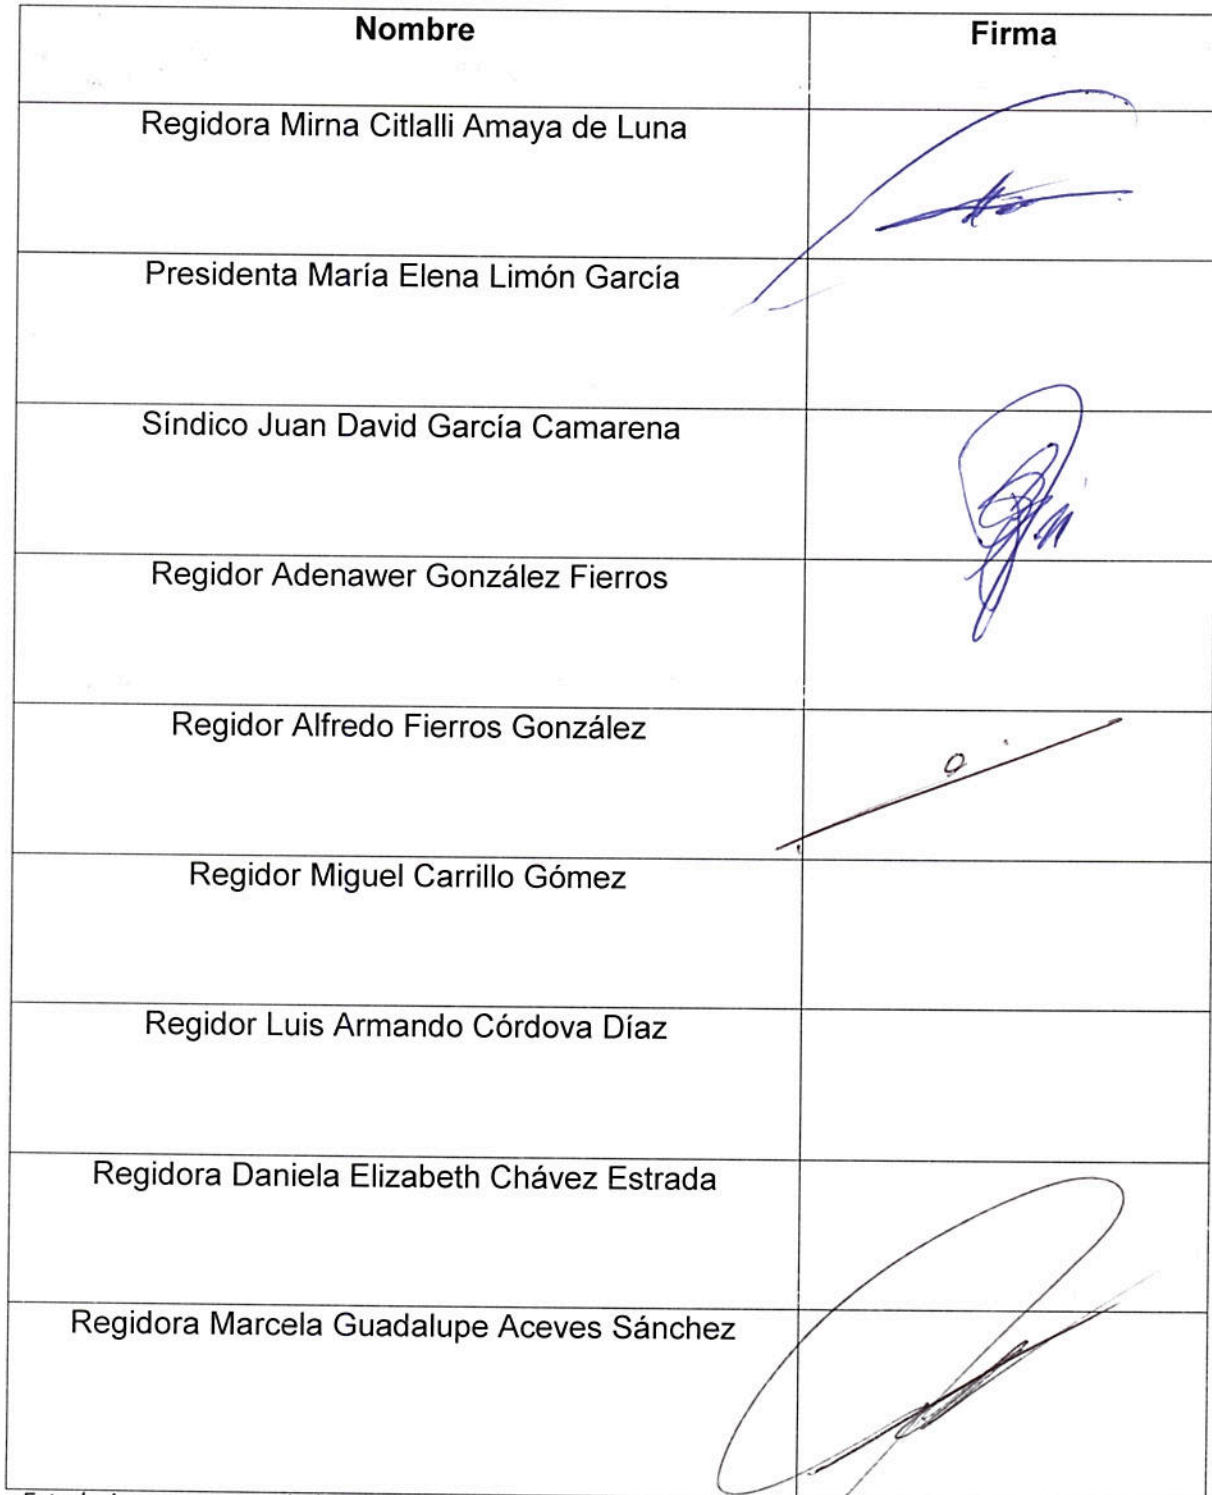 Nombre
Firma
Regidora Mirna Citlalli Amaya de Luna
Presidenta María Elena Limón García
Síndico Juan David García Camarena
Regidor Adenawer González Fierros
Regidor Alfredo Fierros González
Regidor Miguel Carrillo Gómez
Regidor Luis Armando Córdova Díaz
Regidora Daniela Elizabeth Chávez Estrada
Regidora Marcela Guadalupe Aceves Sánchez